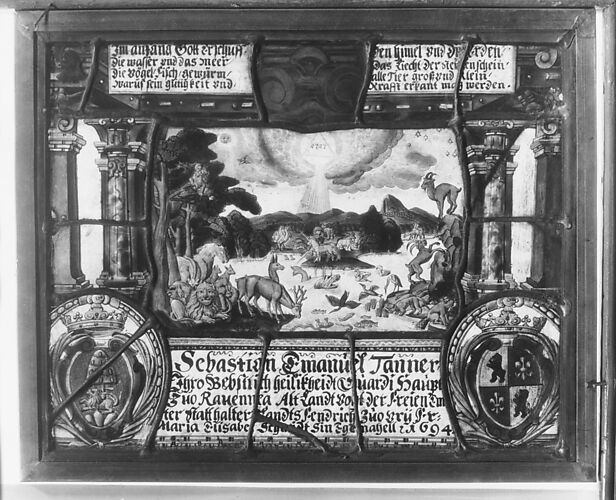 Im anfang Gott erschuff
die wasser vnd das meer
die vögel fisch gewürm
warüf sein gütigkeit vnd
den himel vnd die erden
das Liecht der
alle Tier groß vnd klein
krafft erkant mög werden
Sebastian Emanüel Tanner
Jhro Bebstlich heilikheid Guardi Haupt
Zuo Rauennea Alt Landt Vogt der Freien
ter statthalter Landts Fendrich Zuo Vry Fr
Maria Elisabet Schmidt Sin Egemahell 1694